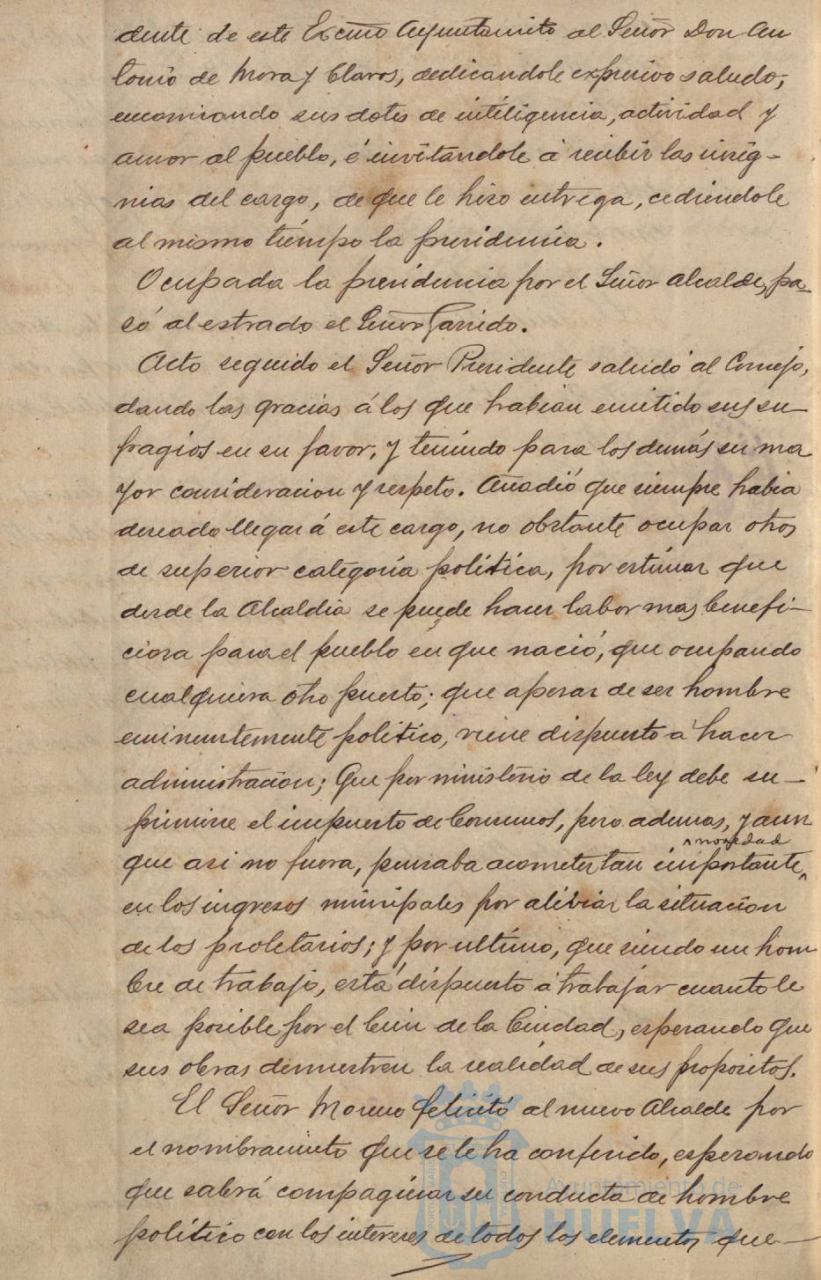 dente de este Excmo Ayuntamito al Señor Don An
tonio de Mora y Claros, dedicandole expresivo saludo,
encomiando sus dotes de inteligencia, actividad y
amor al pueblo, é invitandole á recibir las insig-
nias del cargo, de que le hizo entrega, cediendole
al mismo tiempo la presidencia.
Ocupada la presidencia por el Señor Alcalde, pa-
só al estrado el Señor Garrido.
Acto seguido el Señor Presidente saludó al Consejo,
dando las gracias á los que habian emitido sus su-
fragios en su favor, y teniendo para los demás su ma
yor consideracion y respeto. Añadió que siempre habia
deseado llegar á este cargo, no obstante ocupar otros
de superior categoria politica, por estimar que
desde la Alcaldia se puede hacer labor mas benefi-
ciosa para el pueblo en que nació, que ocupando
cualquiera otro puesto; que apesar de ser hombre
eminentemente politico, viene dispuesto á hacer
administracion; Que por ministerio de la ley debe su-
primirse el impuesto de Consumos, pero ademas, y aun
que asi no fuera, pensaba acometer tan importante novedad,
en los ingresos minipales por aliviar la situacion
de los proletarios; y por ultimo, que siendo un hom
bre de trabajo, está dispuesto á trabajar cuanto le
sea posible por el bien de la Ciudad, esperando que
sus obras demuestren la realidad de sus propositos.
El Señor Moreno felicitó al nuevo Alcalde por
el nombramiento que se le ha conferido, esperando
que sabrá compaginar su conducta de hombre
politico con los intereses de todos los elementos que-
Ayuntamiento de
HUELVA